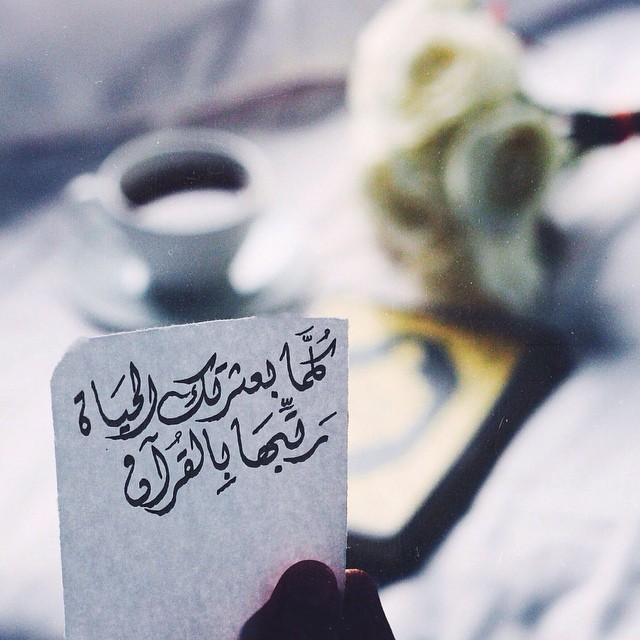 كُلَّما بعثرتك الحَيَاة
رَتِّبهَا بِالقُرآن